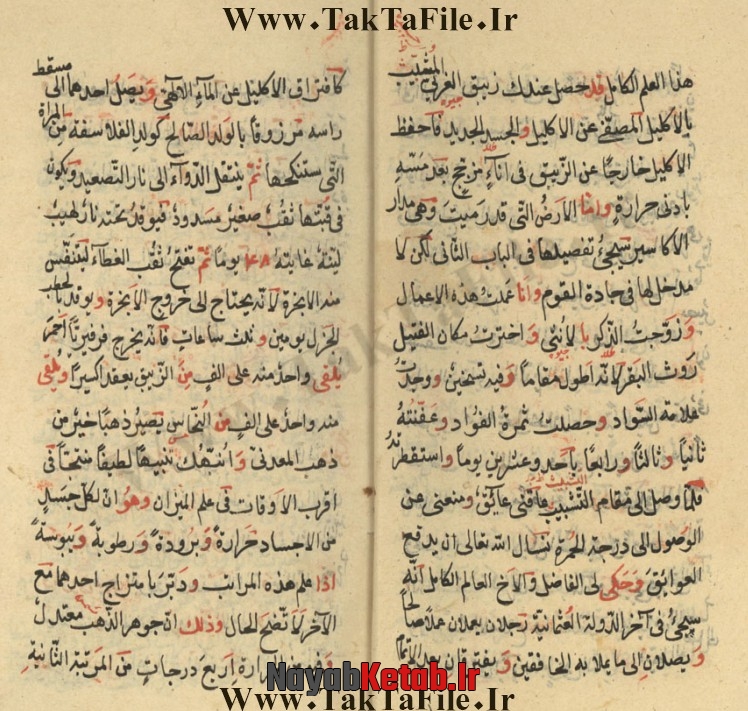 Www.TakTaFile.Ir
هذا العلم الكامل قد حصل عندك زيبق الغربي المشبّب
بالاكليل المصفّى عن الاكليل والجسد الجديد فاحفظ
الاكليل خارجًا عن الزيبق فى اناءٍ من زجج بعد مسّه
بادنى حرارة وامّا الارض التى قد رميت وهى مدار
الاكاسير سيجئ تفصيلها فى الباب الثانى لكن لا
مدخل لها فى جادة القوم وانا عملت هذه الاعمال
وزوّجت الذكر بالانثى واخترت مكان الفتيل
روث البقر لانّه اطول مقاما وفيه تسخين ووجدت
علامة السّواد وحصلت ثمرة الفؤاد وعفّنته
ثانيًا وثالثًا ورابعًا باحد وعشرين يومًا واستقطرته
فلمّا وصل الى مقام التشبيب عاقنى عايق ومنعنى عن
الوصول الى درجة الحمرة نسال الله تعالى ان يدفع
العوائق وحكى لى الفاضل والاخ العالم الكامل انّه
سيجئ فى آخر الدّولة العثمانية رجلان يعملان عملا صالحًا
ويصلان الى ما يملا به الخافقين ويفترقان بعد
كافتراق الاكليل عن المآء الالهى ويصل احدهما الى مسقط
راسه مرزوقا بالولد الصّالح كولد الفلاسفة من المراة
التى ستنكحها ثمّ ينتقل الدّوآء الى نار التّصعيد ويكون
فى قبّتها ثقب صغير مسدود فيوقد تحته نار لهيب
ليّنة غايته ٤٨ يومًا ثمّ تفتح ثقب الغطآء ليتنفّس
منه الابخرة لانّه يحتاج الى خروج الابخرة ويوقد بالحطب
الجزل يومين وثلث ساعات فانّه يخرج فرفيريًّا احمر
يلقى واحد منه على الف من الزّيبق يعقد اكسيرًا ويلقى
منه واحد على الف من النحاس يصير ذهبًا خير من
ذهب المعدنى وانبّهك تنبيهًا لطيفًا منتجًا فى
اقرب الاوقات فى علم الميزان وهو انّ لكلّ جسد
من الاجساد حرارةً وبرودةً ورطوبةً ويبوسةً
اذا علم هذه المراتب ودبّر بامتزاج احدهما مع
الآخر لاتّضح الحال وذلك انّ جوهر الذّهب معتدل
الحرارة اربع درجات من المرتبة الثّانية
NayabKetab.Ir
Www.TakTaFile.Ir